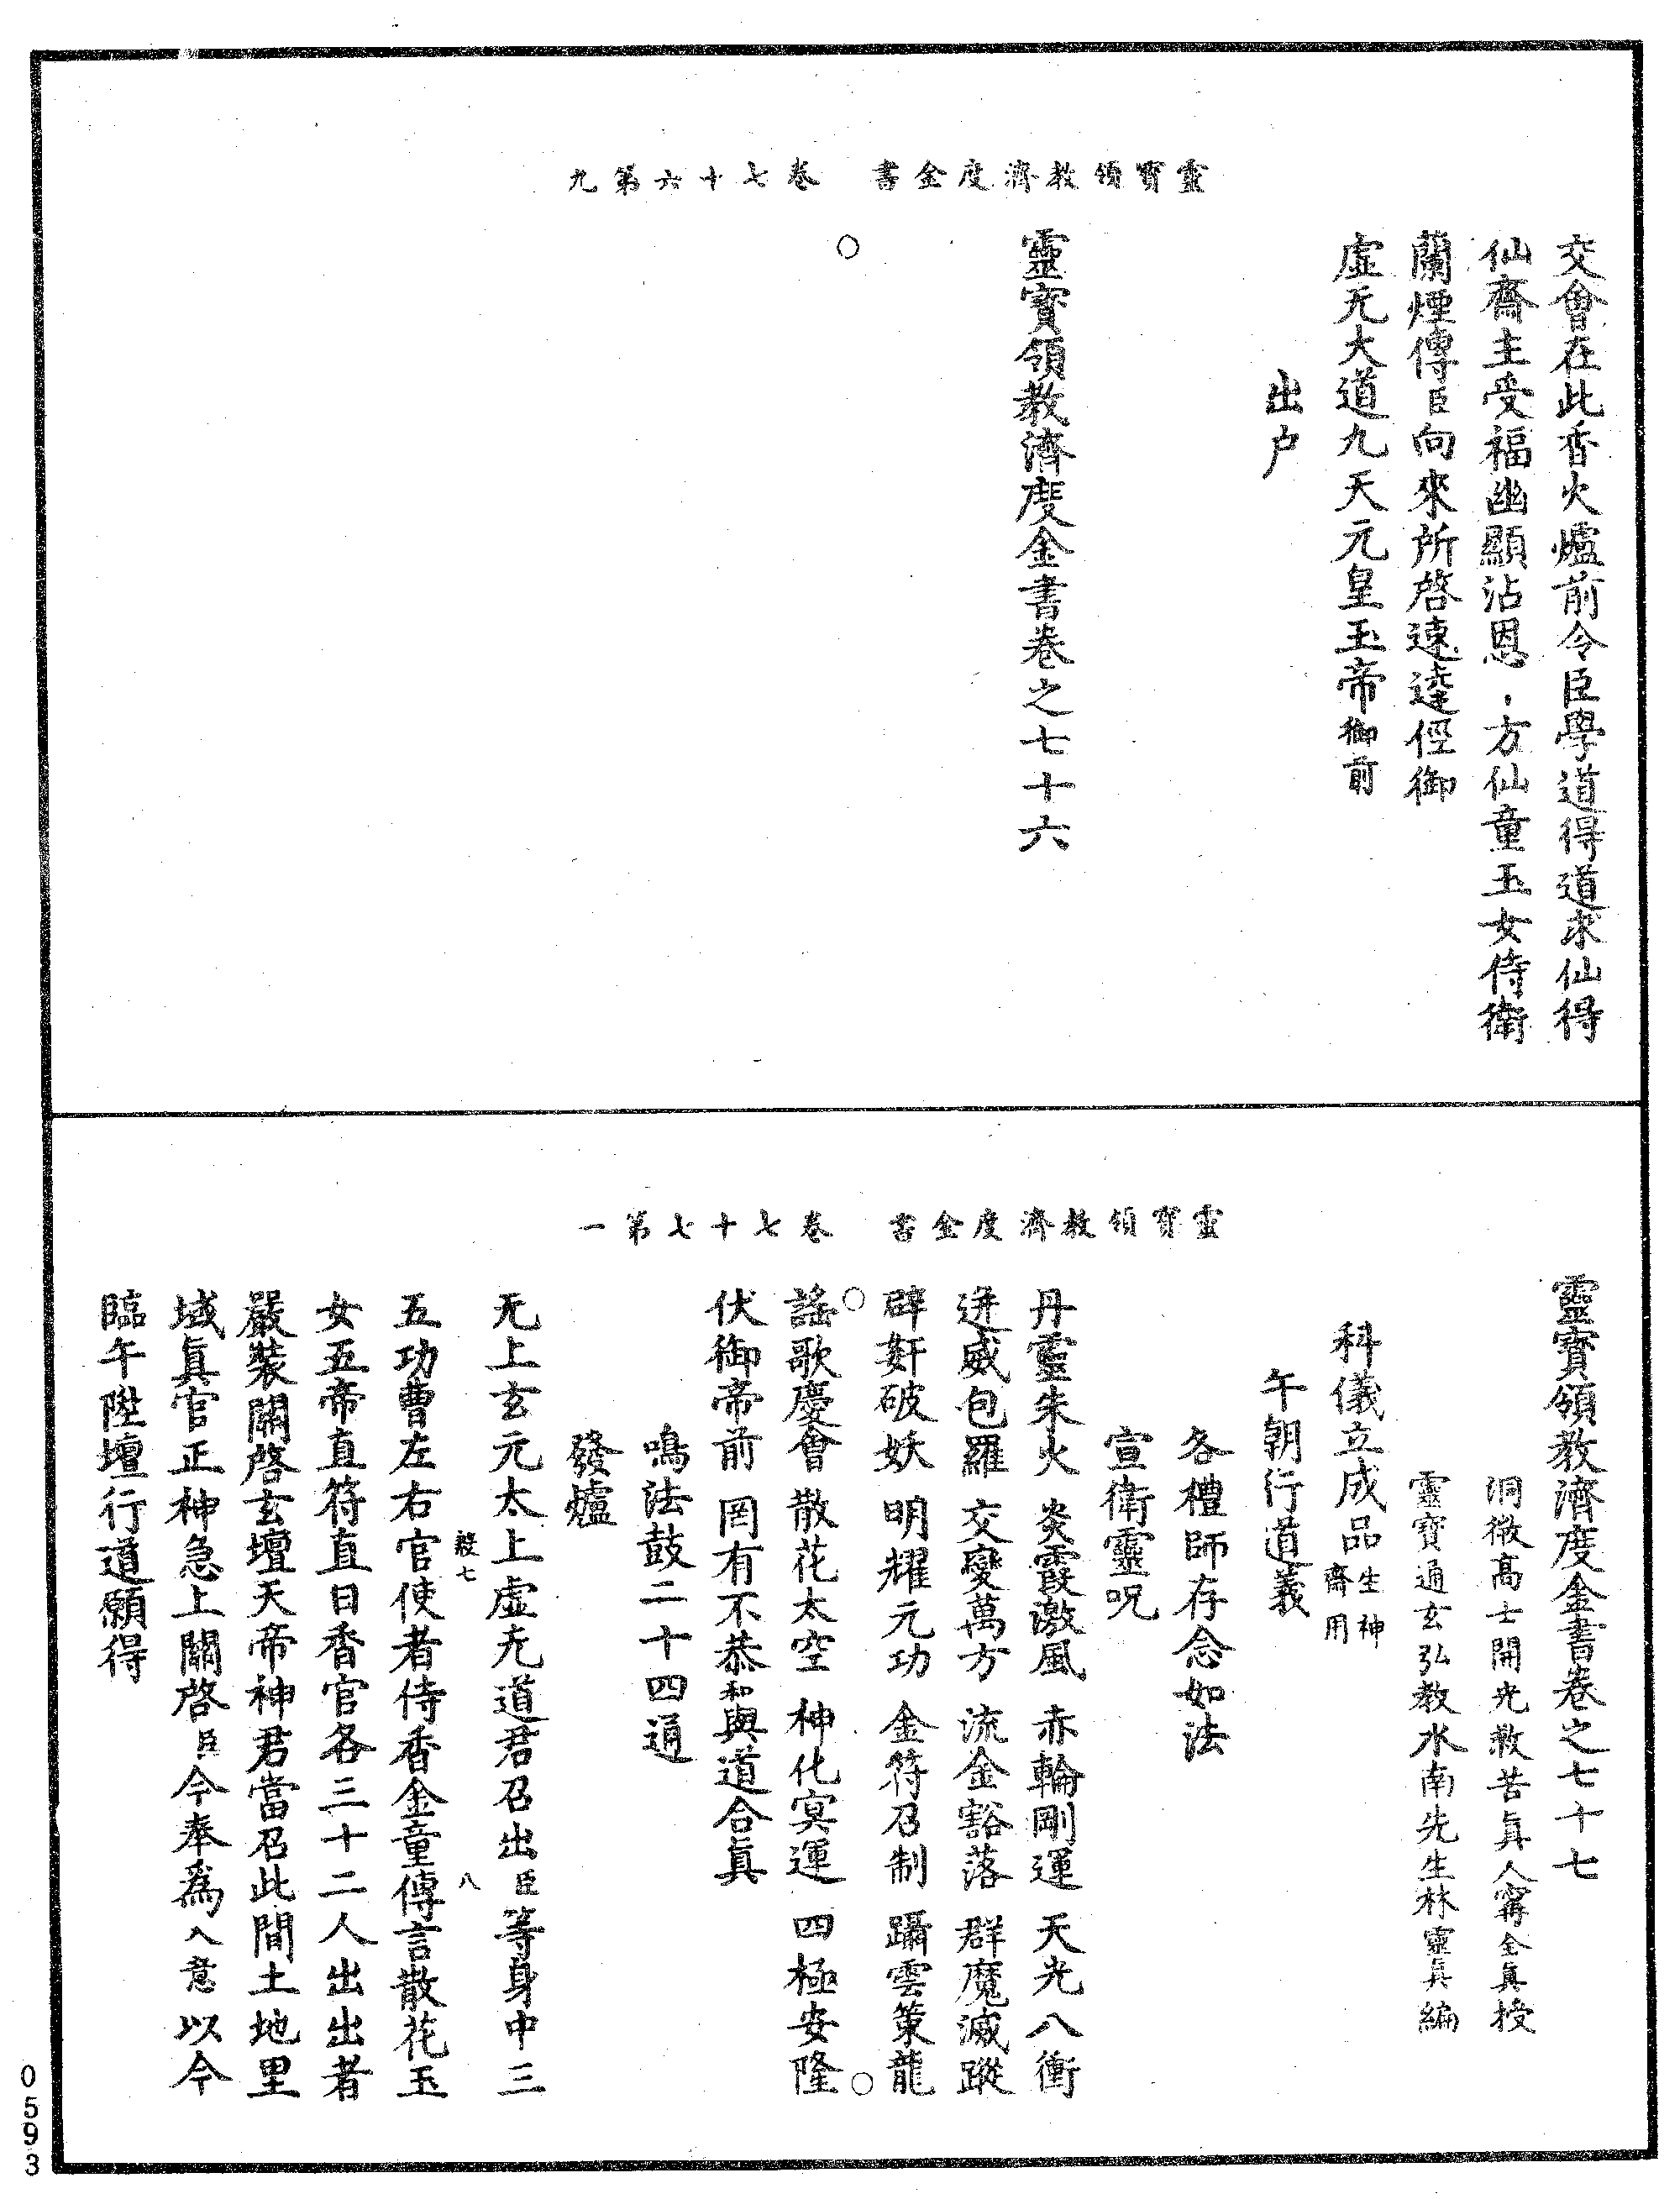 靈寶領教濟度金書 卷七十六第九
交會在此香火爐前令臣學道得道求仙得
仙齋主受福幽顯沾恩,方仙童玉女侍衛
蘭煙傳臣向來所啓速達俓御
虛无大道九天元皇玉帝御前
出户
靈寶領教濟度金書卷之七十六
靈寶領教濟度金書 卷七十七第一
靈寶領教濟度金書卷之七十七
洞微高士開光救苦眞人甯全眞授
靈寶通玄弘教水南先生林靈眞編
科儀立成品生神齋用
午朝行道義
各禮師存念如法
宣衛靈呪
丹靈朱火 炎霞激風 赤輪剛運 天光八衝
迸威包羅 交變萬方 流金豁落 群魔滅蹤
辟奸破妖 明耀元功 金符召制 躡雲策龍
謠歌慶會 散花太空 神化冥運 四極安隆
伏御帝前 罔有不恭和與道合眞
鳴法鼓二十四通
發爐
无上玄元太上虛无道君召出臣等身中三
五功曹左右官使者侍香金童傳言散花玉
八
女五帝直符直日香官各三十二人出出者
嚴裝關啓玄壇天帝神君當召此間土地里
域眞官正神急上關啓臣今奉爲入意以今
臨午陞壇行道願得
0593